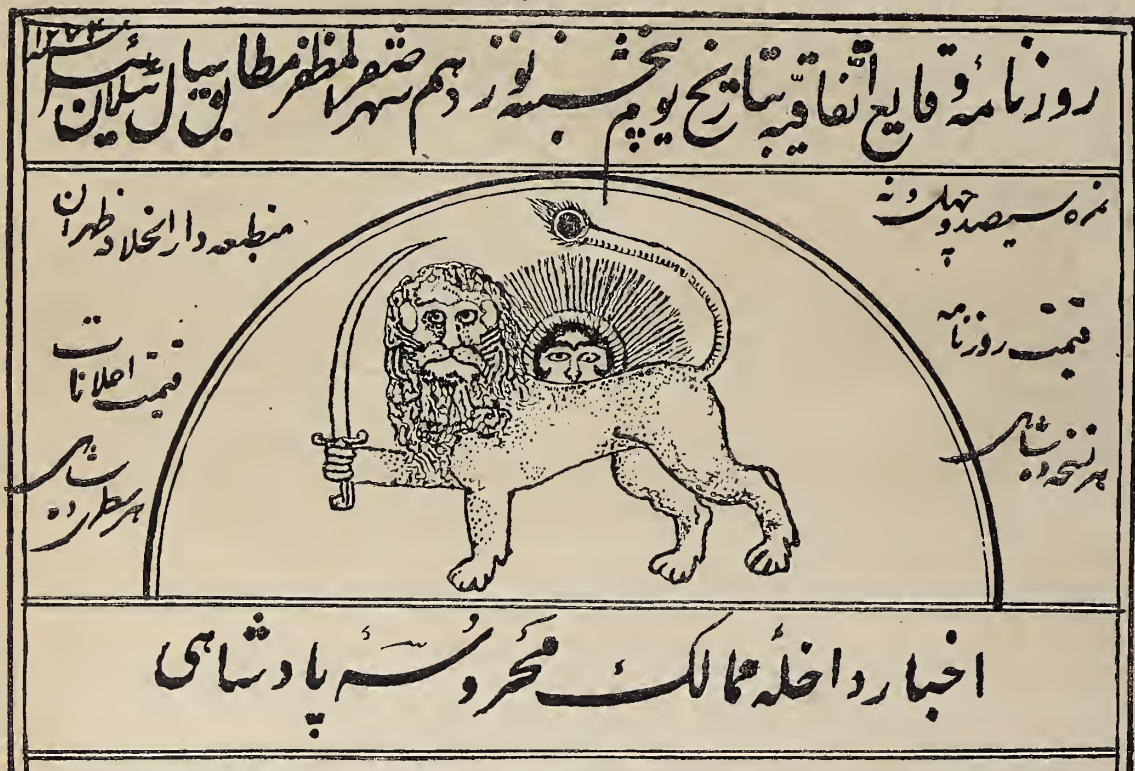 روزنامهٔ وقایع اتّفاقیّه بتاریخ یوم پنجشنبه نوزدهم شهر صفر المظفر مطابق سال ئیلان ئیل سنه ۱۲۷۴
نمره سیصد و چهل و نه
قیمت روزنامه
هر نسخه ده شاهی
منطبعه دارالخلافه طهران
قیمت اعلانات
هر سطری ده شاهی
اخبار داخلهٔ ممالک محروسهٔ پادشاهی